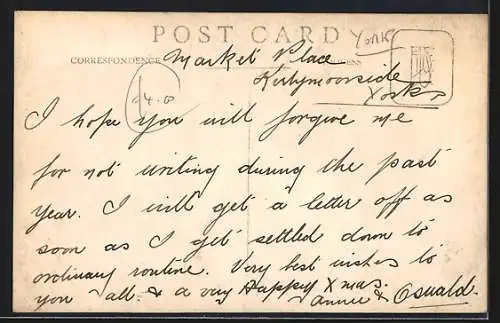 POST CARD
York
CORRESPONDENCE
Market Place
Kirbymoorside
Yorks
£4.0
I hope you will forgive me
for not writing during the past
year. I will get a letter off as
soon as I get settled down to
ordinary routine. Very best wishes to
you all. & a very Happy Xmas.
Annie & Oswald.